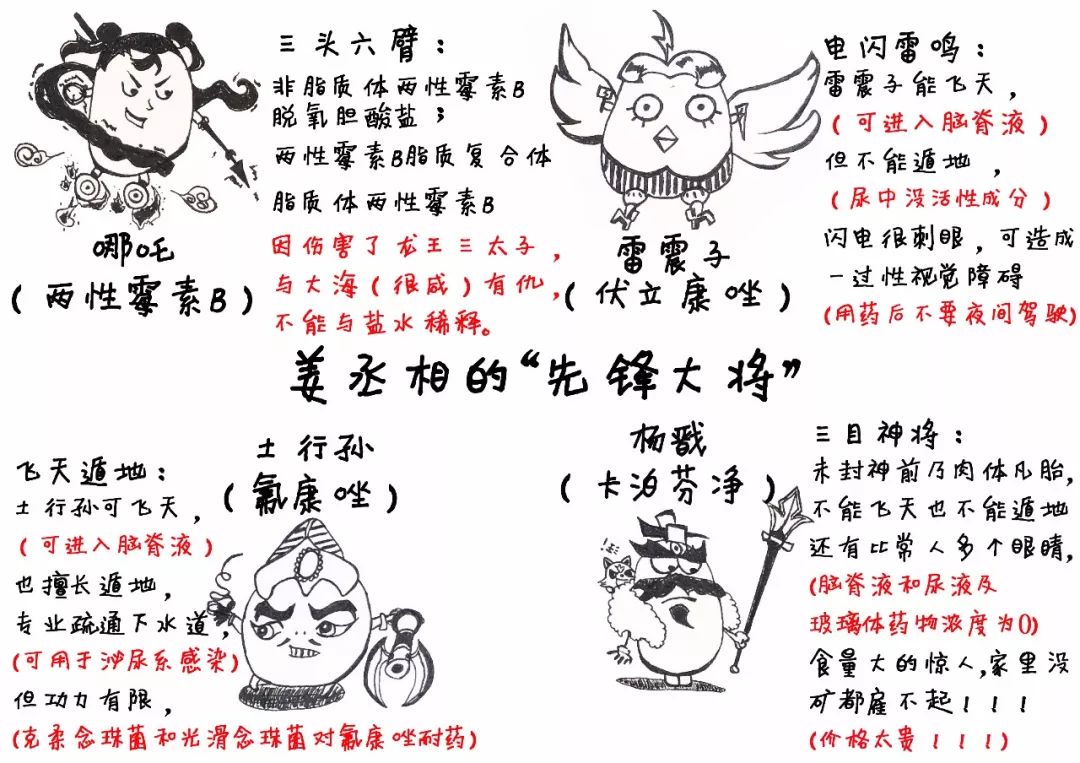 三头六臂：
非脂质体两性霉素B
脱氧胆酸盐；
两性霉素B脂质复合体
脂质体两性霉素B
因伤害了龙王三太子，
与大海（很咸）有仇，
不能与盐水稀释。
哪吒
（两性霉素B）
雷震子
（伏立康唑）
电闪雷鸣：
雷震子能飞天，
（可进入脑脊液）
但不能遁地，
（尿中没活性成分）
闪电很刺眼，可造成
一过性视觉障碍
(用药后不要夜间驾驶)
姜丞相的“先锋大将”
土行孙
（氟康唑）
飞天遁地：
土行孙可飞天，
（可进入脑脊液）
也擅长遁地，
专业疏通下水道，
(可用于泌尿系感染)
但功力有限，
(克柔念珠菌和光滑念珠菌对氟康唑耐药)
杨戬
（卡泊芬净）
三目神将：
未封神前乃肉体凡胎，
不能飞天也不能遁地
还有比常人多个眼睛，
(脑脊液和尿液及
玻璃体药物浓度为0)
食量大的惊人，家里没
矿都雇不起！！！
(价格太贵！！！)